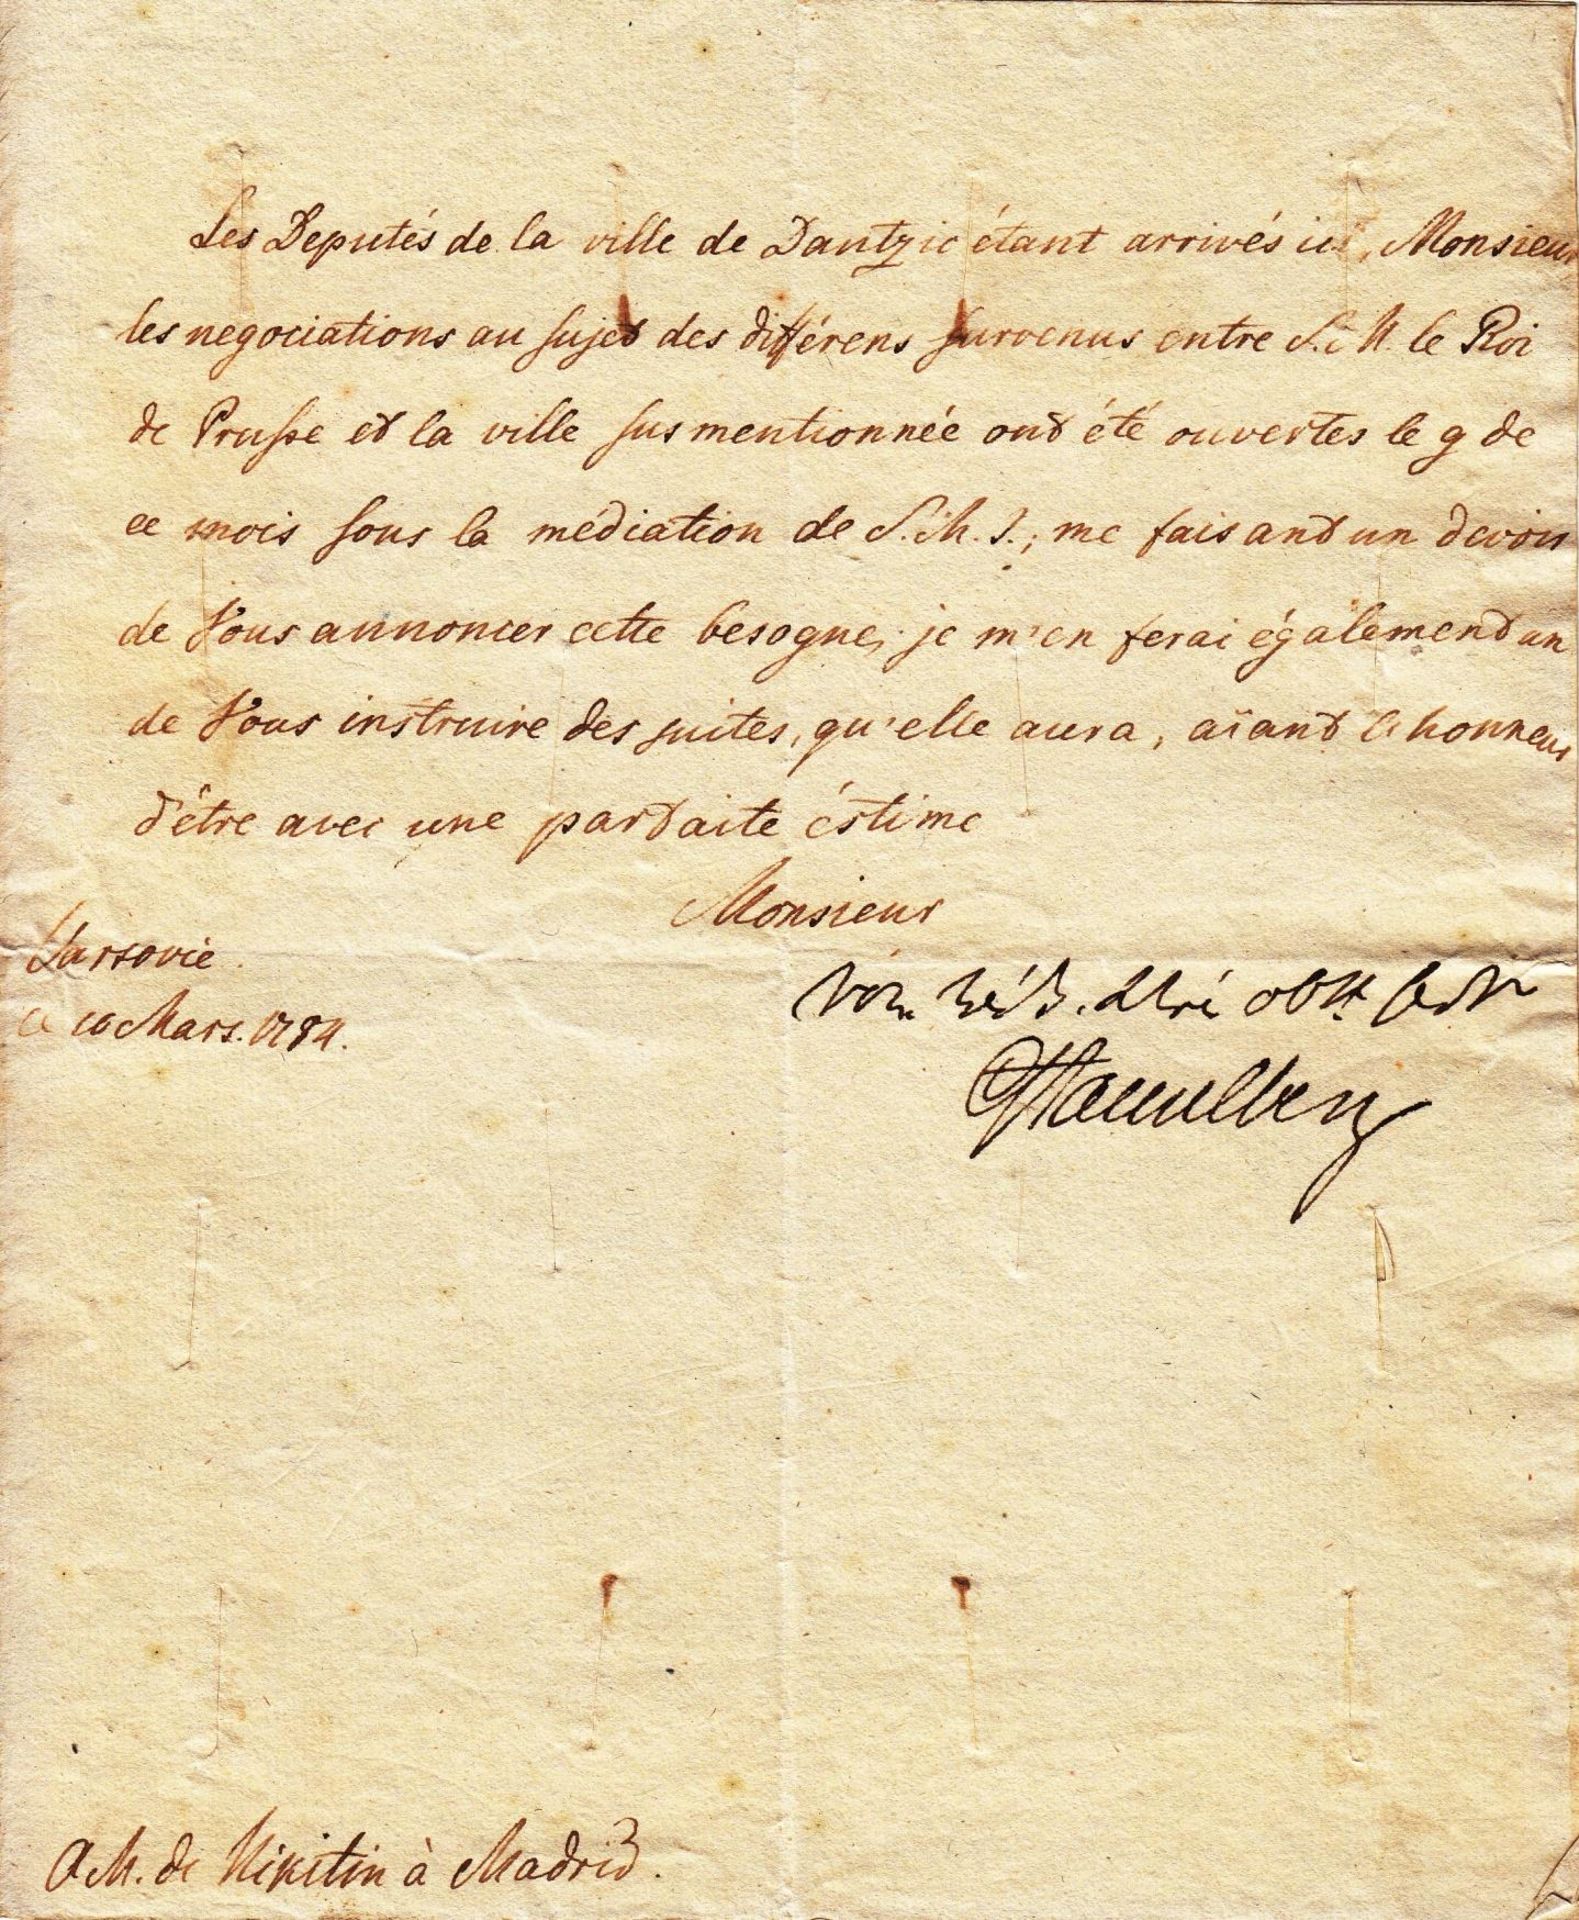 Les Deputés de la ville de Dantzic étant arrivés ici, Monsieur
les negociations au sujet des différens survenus entre S. M. le Roi
de Prusse et la ville susmentionnée ont été ouvertes le 9 de
ce mois sous la médiation de S. M. I.; me faisant un devoir
de Vous annoncer cette besogne, je m'en ferai également un
de Vous instruire des suites, qu'elle aura, aïant l'honneur
d'être avec une parfaite éstime
Monsieur
Varsovie
ce 10 Mars. 1784.
A M. de Nikitin à Madrid.